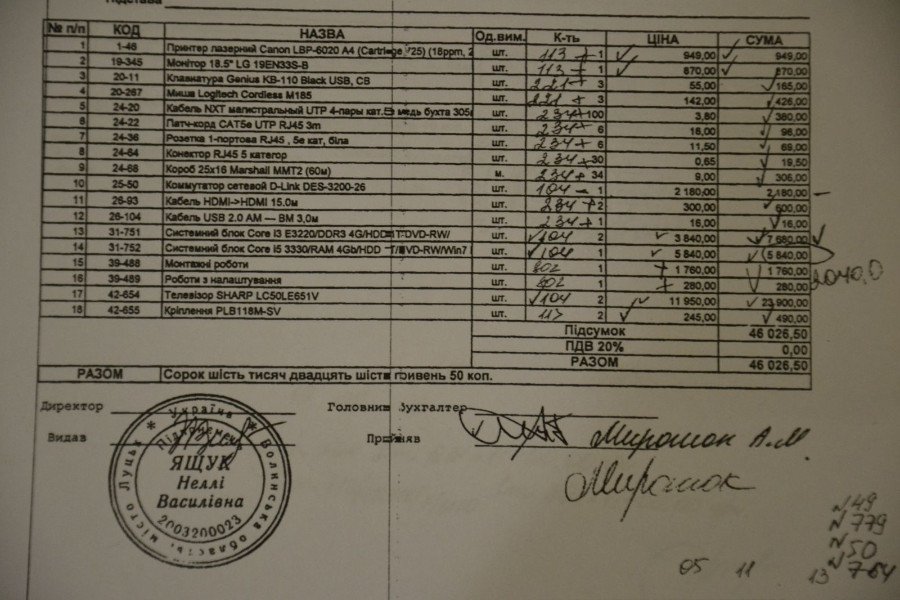 № п/п КОД НАЗВА Од.вим. К-ть ЦІНА СУМА
1 1-46 Принтер лазерний Canon LBP-6020 A4 (Cartriege 725) (18ppm, 2 шт. 113 + 1 949,00 949,00
2 19-345 Монітор 18.5" LG 19EN33S-B шт. 113 + 1 870,00 870,00
3 20-11 Клавиатура Genius KB-110 Black USB, CB шт. 221 + 3 55,00 165,00
4 20-267 Миша Logitech Cordless M185 шт. 221 + 3 142,00 426,00
5 24-20 Кабель NXT магистральный UTP 4-пары кат.5 медь бухта 305 шт. 234+100 3,80 380,00
6 24-22 Патч-корд CAT5e UTP RJ45 3m шт. 234 + 6 16,00 96,00
7 24-36 Розетка 1-портова RJ45 , 5е кат, біла шт. 234 + 6 11,50 69,00
8 24-64 Конектор RJ45 5 категор шт. 234 + 30 0,65 19,50
9 24-68 Короб 25x16 Marshall MMT2 (60м) м. 234 + 34 9,00 306,00
10 25-50 Коммутатор сетевой D-Link DES-3200-26 шт. 104 – 1 2 180,00 2 180,00 –
11 26-93 Кабель HDMI->HDMI 15.0м шт. 234 + 2 300,00 600,00
12 26-104 Кабель USB 2.0 AM — BM 3,0м шт. 234 + 1 16,00 16,00
13 31-751 Системний блок Core i3 E3220/DDR3 4G/HDD 1T DVD-RW/ шт. 104 2 3 840,00 7 680,00
14 31-752 Системний блок Core i5 3330/RAM 4Gb/HDD DVD-RW/Win7 шт. 104 1 5 840,00 5 840,00
15 39-488 Монтажні роботи шт. 802 1 1 760,00 1 760,00
16 39-489 Роботи з налаштування шт. 802 1 280,00 280,00
17 42-654 Телевізор SHARP LC50LE651V шт. 104 2 11 950,00 23 900,00
18 42-655 Кріплення PLB118M-SV шт. 113 2 245,00 490,00
2040,0
Підсумок 46 026,50
ПДВ 20% 0,00
РАЗОМ 46 026,50
РАЗОМ Сорок шість тисяч двадцять шість гривень 50 коп.
Директор Головний бухгалтер
Видав Прийняв
Мирошок А.М
Мирошок
Україна * Волинська область, місто Луцьк *
Підприємець
ЯЩУК
Неллі
Василівна
2003200023
№ 49
№ 779
№ 50
№ 764
05 11 13